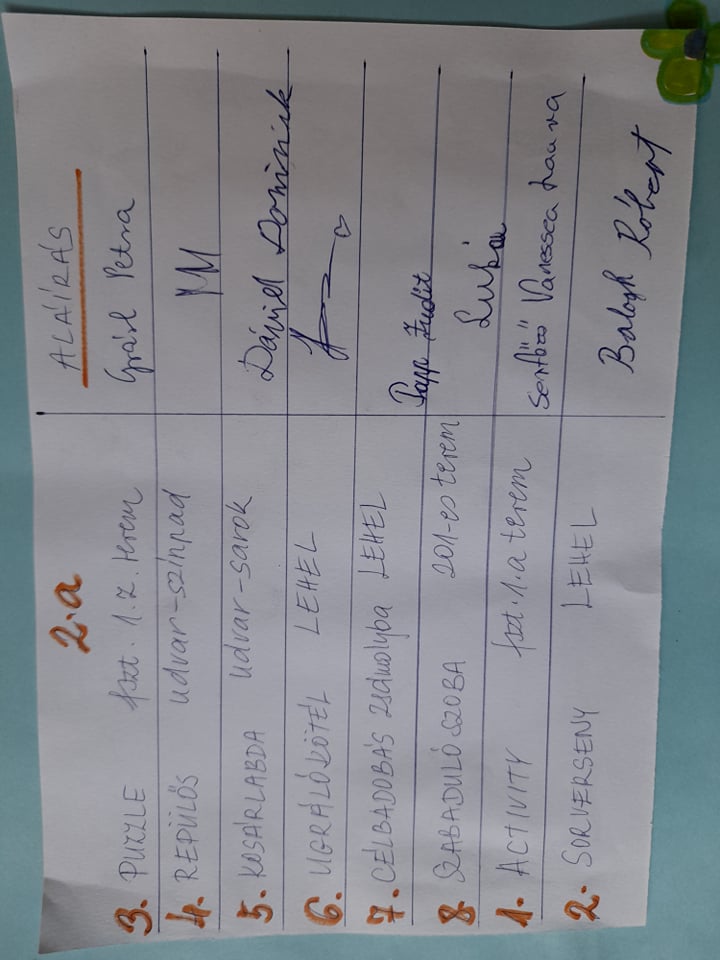 2.a ALÁÍRÁS
3. PUZZLE fszt. 1.z. terem Petra
4. REPÜLŐS udvar-színpad MM
5. KOSÁRLABDA udvar-sarok Dániel Dominik
6. UGRÁLÓKÖTÉL LEHEL
7. CÉLBADOBÁS zsámolyba LEHEL Papp Judit
8. SZABADULÓ SZOBA 201-es terem
1. ACTIVITY fszt. 1.a terem Vanessza Laura
2. SORVERSENY LEHEL Balogh Róbert